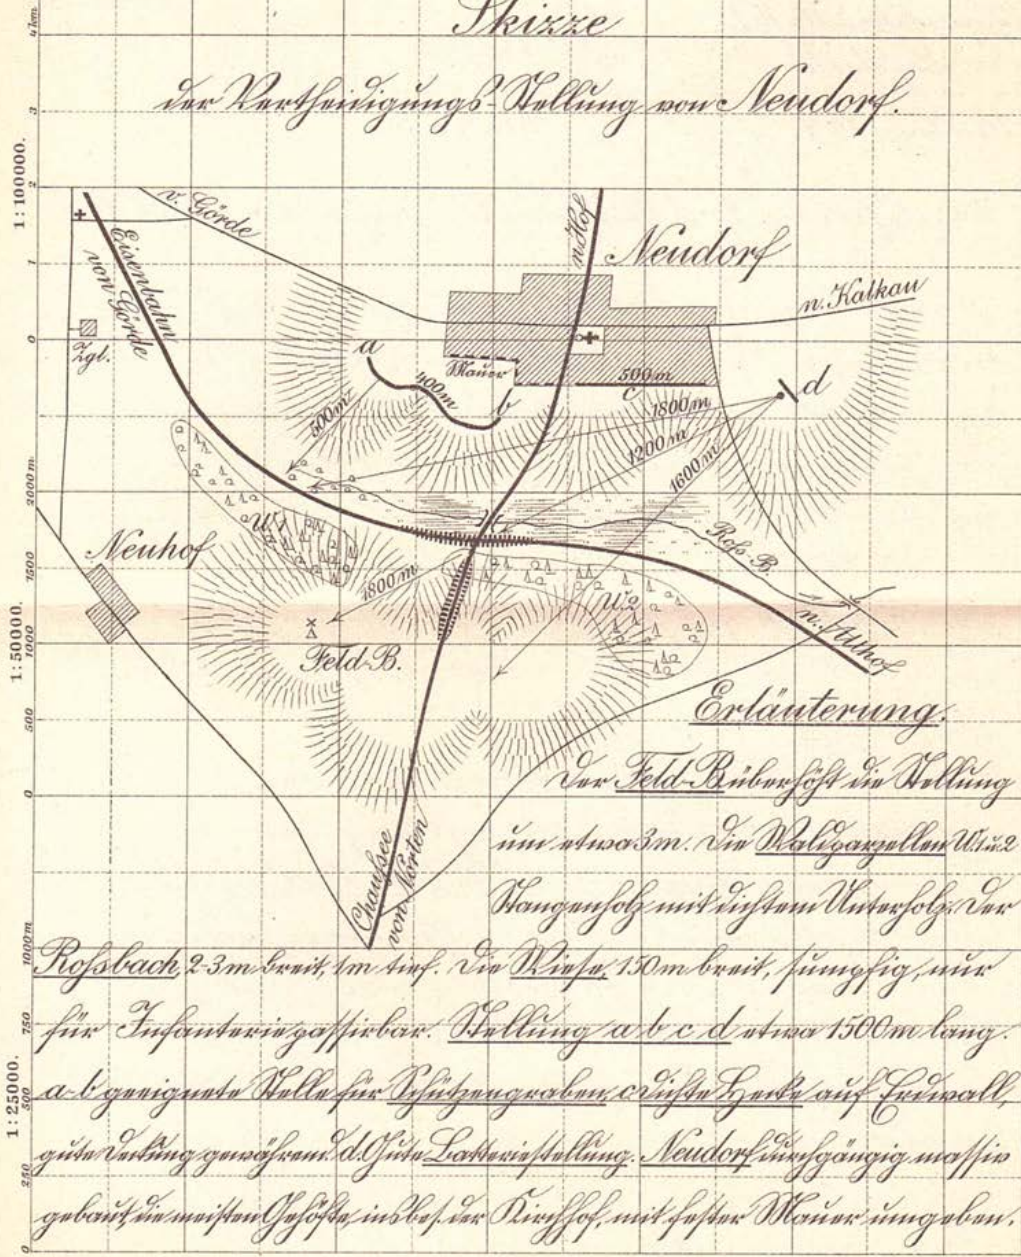 Skizze
der Vertheidigungs-Stellung von Neudorf.
4 km.
3
2
1
0
1:100000.
2000 m
1500
1000
500
0
1:50000.
1000 m
750
500
250
0
1:25000.
v. Görde
n. Hof
Neudorf
n. Kalkau
Eisenbahn
von Görde
Zgl.
a
400 m
b
Mauer
500 m
c
d
500 m
1800 m
1200 m
1600 m
W. 1
Neuhof
1800 m
Roß-B.
W. 2
n. Althof
Feld-B.
Chaussee
von Nörten
Erläuterung.
Der Feld-B. überhöht die Stellung
um etwa 3 m. Die Waldparzellen W. 1 u. 2
Stangenholz mit dichtem Unterholz. Der
Roßbach, 2-3 m breit, 1 m tief. Die Wiese, 150 m breit, sumpfig, nur
für Infanterie passirbar. Stellung a b c d etwa 1500 m lang.
a-b geeignete Stelle für Schützengraben, c dichte Hecke auf Erdwall,
gute Deckung gewährend. d. Gute Batteriestellung. Neudorf durchgängig massiv
gebaut, die meisten Gehöfte, insbes. der Kirchhof, mit fester Mauer umgeben.